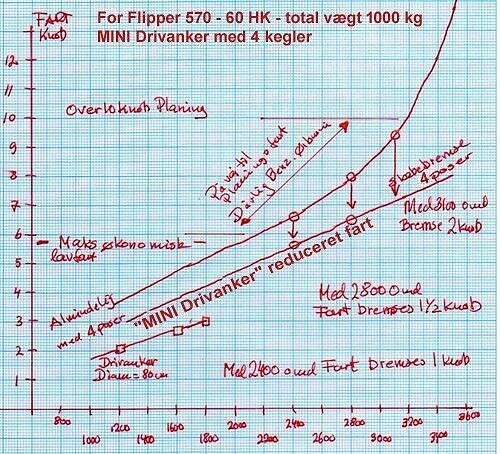 FART
Knob
For Flipper 570 - 60 HK - total vægt 1000 kg
MINI Drivanker med 4 kegler
12
11
10
9
8
7
6
5
4
3
2
1
Over 10 knob Planing
På vej til
Planingsfart
Dårlig Benz. økonomi
Maks økonomisk
lavfart
Skabebremse
4 poser
Med 3100 omd
Bremse 2 knob
Almindelig
med 4 poser
"MINI Drivanker" reduceret fart
Med 2800 Omd
Fart bremses 1 1/2 knob
Drivanker
Diam = 80 cm
Med 2400 omd Fart bremses 1 knob
800
1000
1200
1400
1600
1800
2000
2200
2400
2600
2800
3000
3200
3400
3600